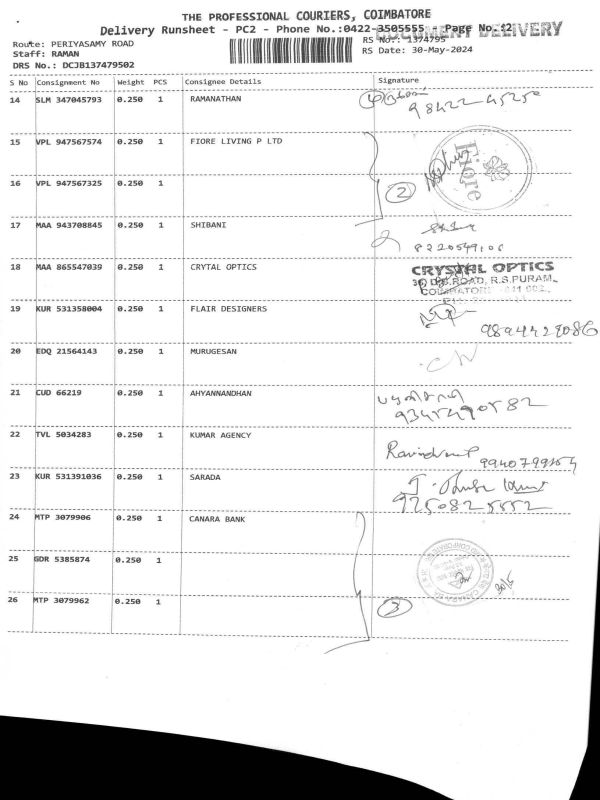 THE PROFESSIONAL COURIERS, COIMBATORE
Delivery Runsheet - PC2 - Phone No.:0422-3505555 - Page No.:2
DOCUMENT DELIVERY
Route: PERIYASAMY ROAD
RS No.: 1374795
Staff: RAMAN
RS Date: 30-May-2024
DRS No.: DCJB137479502
S No Consignment No Weight PCS Consignee Details Signature
14 SLM 347045793 0.250 1 RAMANATHAN
98422 45250
15 VPL 947567574 0.250 1 FIORE LIVING P LTD
Fiore
16 VPL 947567325 0.250 1
2
17 MAA 943708845 0.250 1 SHIBANI
18 MAA 865547039 0.250 1 CRYTAL OPTICS
CRYSTAL OPTICS
ROAD, R.S.PURAM,
19 KUR 531358004 0.250 1 FLAIR DESIGNERS
20 EDQ 21564143 0.250 1 MURUGESAN
21 CUD 66219 0.250 1 AHYANNANDHAN
22 TVL 5034283 0.250 1 KUMAR AGENCY
23 KUR 531391036 0.250 1 SARADA
24 MTP 3079906 0.250 1 CANARA BANK
25 GDR 5385874 0.250 1
30/5
26 MTP 3079962 0.250 1
3